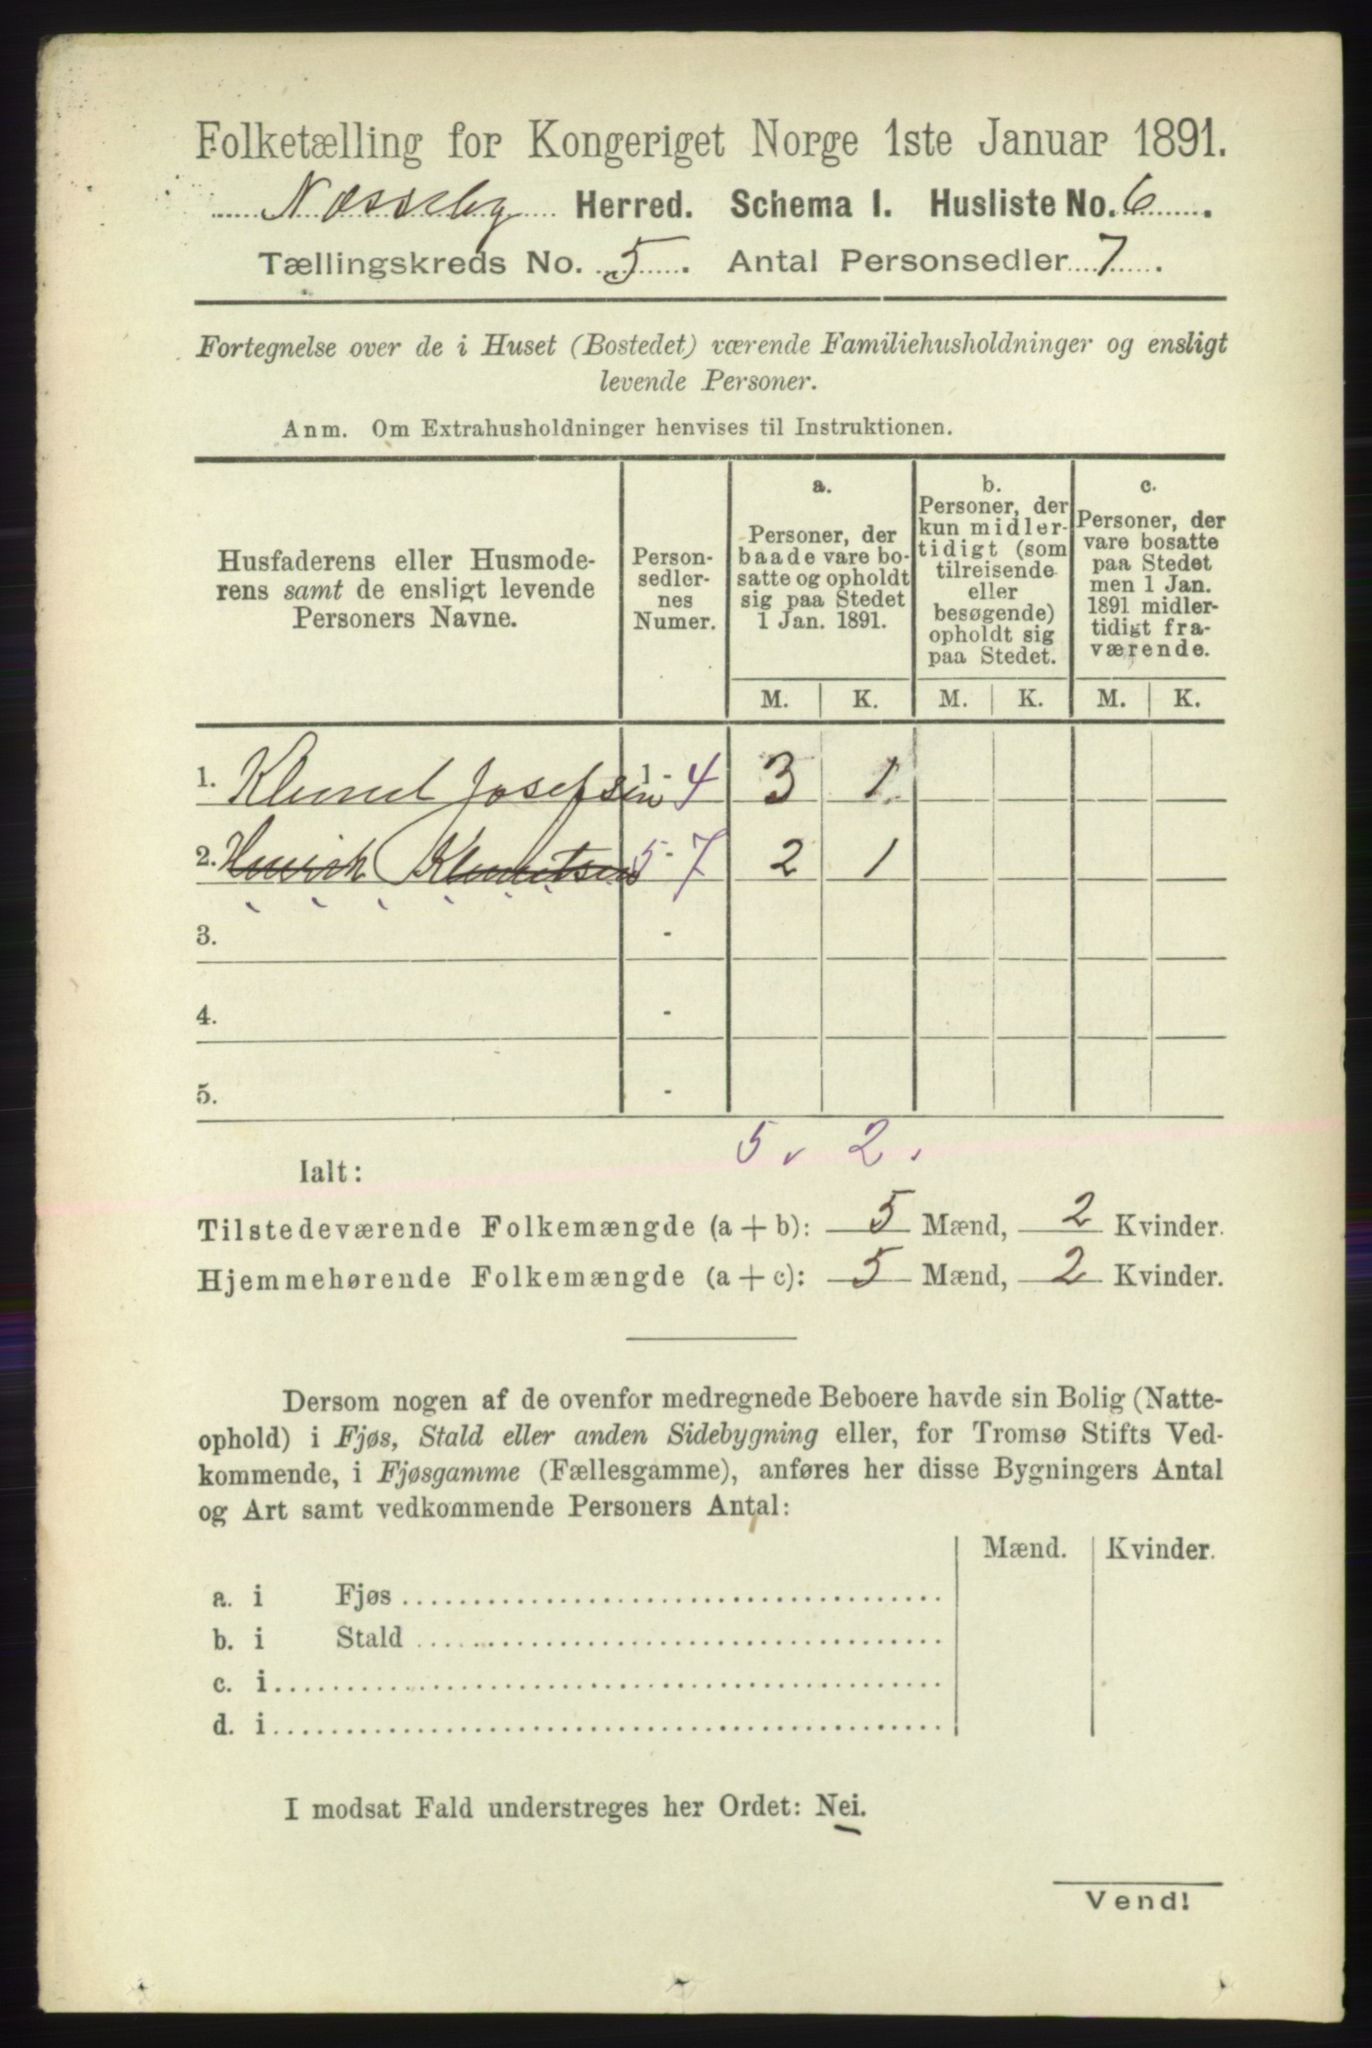 Folketælling for Kongeriget Norge 1ste Januar 1891.
Næsseby Herred. Schema I. Husliste No. 6.
Tællingskreds No. 5. Antal Personsedler 7.
Fortegnelse over de i Huset (Bostedet) værende Familiehusholdninger og ensligt
levende Personer.
Anm. Om Extrahusholdninger henvises til Instruktionen.
Husfaderens eller Husmode-
rens samt de ensligt levende
Personers Navne.
Person-
sedler-
nes
Numer.
a.
Personer, der
baade vare bo-
satte og opholdt
sig paa Stedet
1 Jan. 1891.
b.
Personer, der
kun midler-
tidigt (som
tilreisende
eller
besøgende)
opholdt sig
paa Stedet.
c.
Personer, der
vare bosatte
paa Stedet
men 1 Jan.
1891 midler-
tidigt fra-
værende.
M. K. M. K. M. K.
1. Klemet Josefsen 1 - 4 3 1
2. Henrik Klemetsen 5 - 7 2 1
3. -
4. -
5. -
5. 2.
Ialt:
Tilstedeværende Folkemængde (a + b): 5 Mænd, 2 Kvinder.
Hjemmehørende Folkemængde (a + c): 5 Mænd, 2 Kvinder.
Dersom nogen af de ovenfor medregnede Beboere havde sin Bolig (Natte-
ophold) i Fjøs, Stald eller anden Sidebygning eller, for Tromsø Stifts Ved-
kommende, i Fjøsgamme (Fællesgamme), anføres her disse Bygningers Antal
og Art samt vedkommende Personers Antal:
Mænd. Kvinder.
a. i Fjøs
b. i Stald
c. i
d. i
I modsat Fald understreges her Ordet: Nei.
Vend!